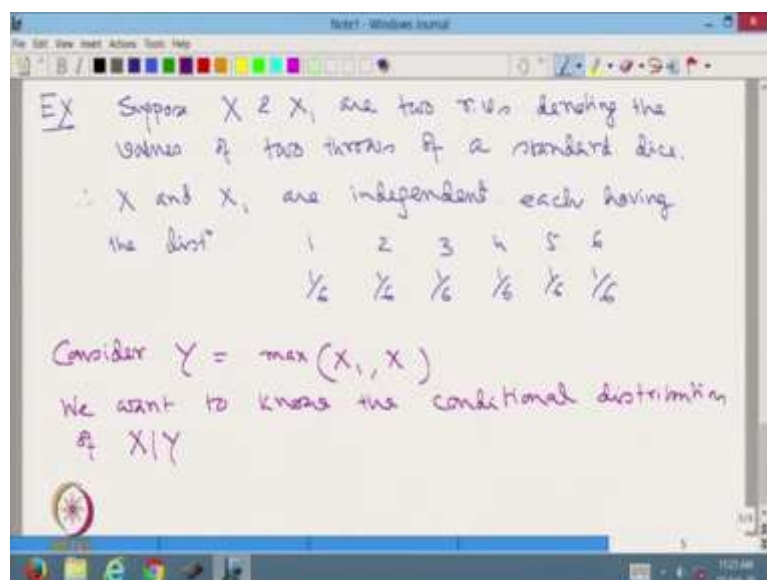 Note1 - Windows Journal
File Edit View Insert Actions Tools Help
EX Suppose X & X₁ are two r.v.s denoting the
values of two throws of a standard dice.
∴ X and X₁ are independent each having
the distⁿ 1 2 3 4 5 6
1/6 1/6 1/6 1/6 1/6 1/6
Consider Y = max (X₁, X)
We want to know the conditional distribution
of X|Y
5
11:23 AM